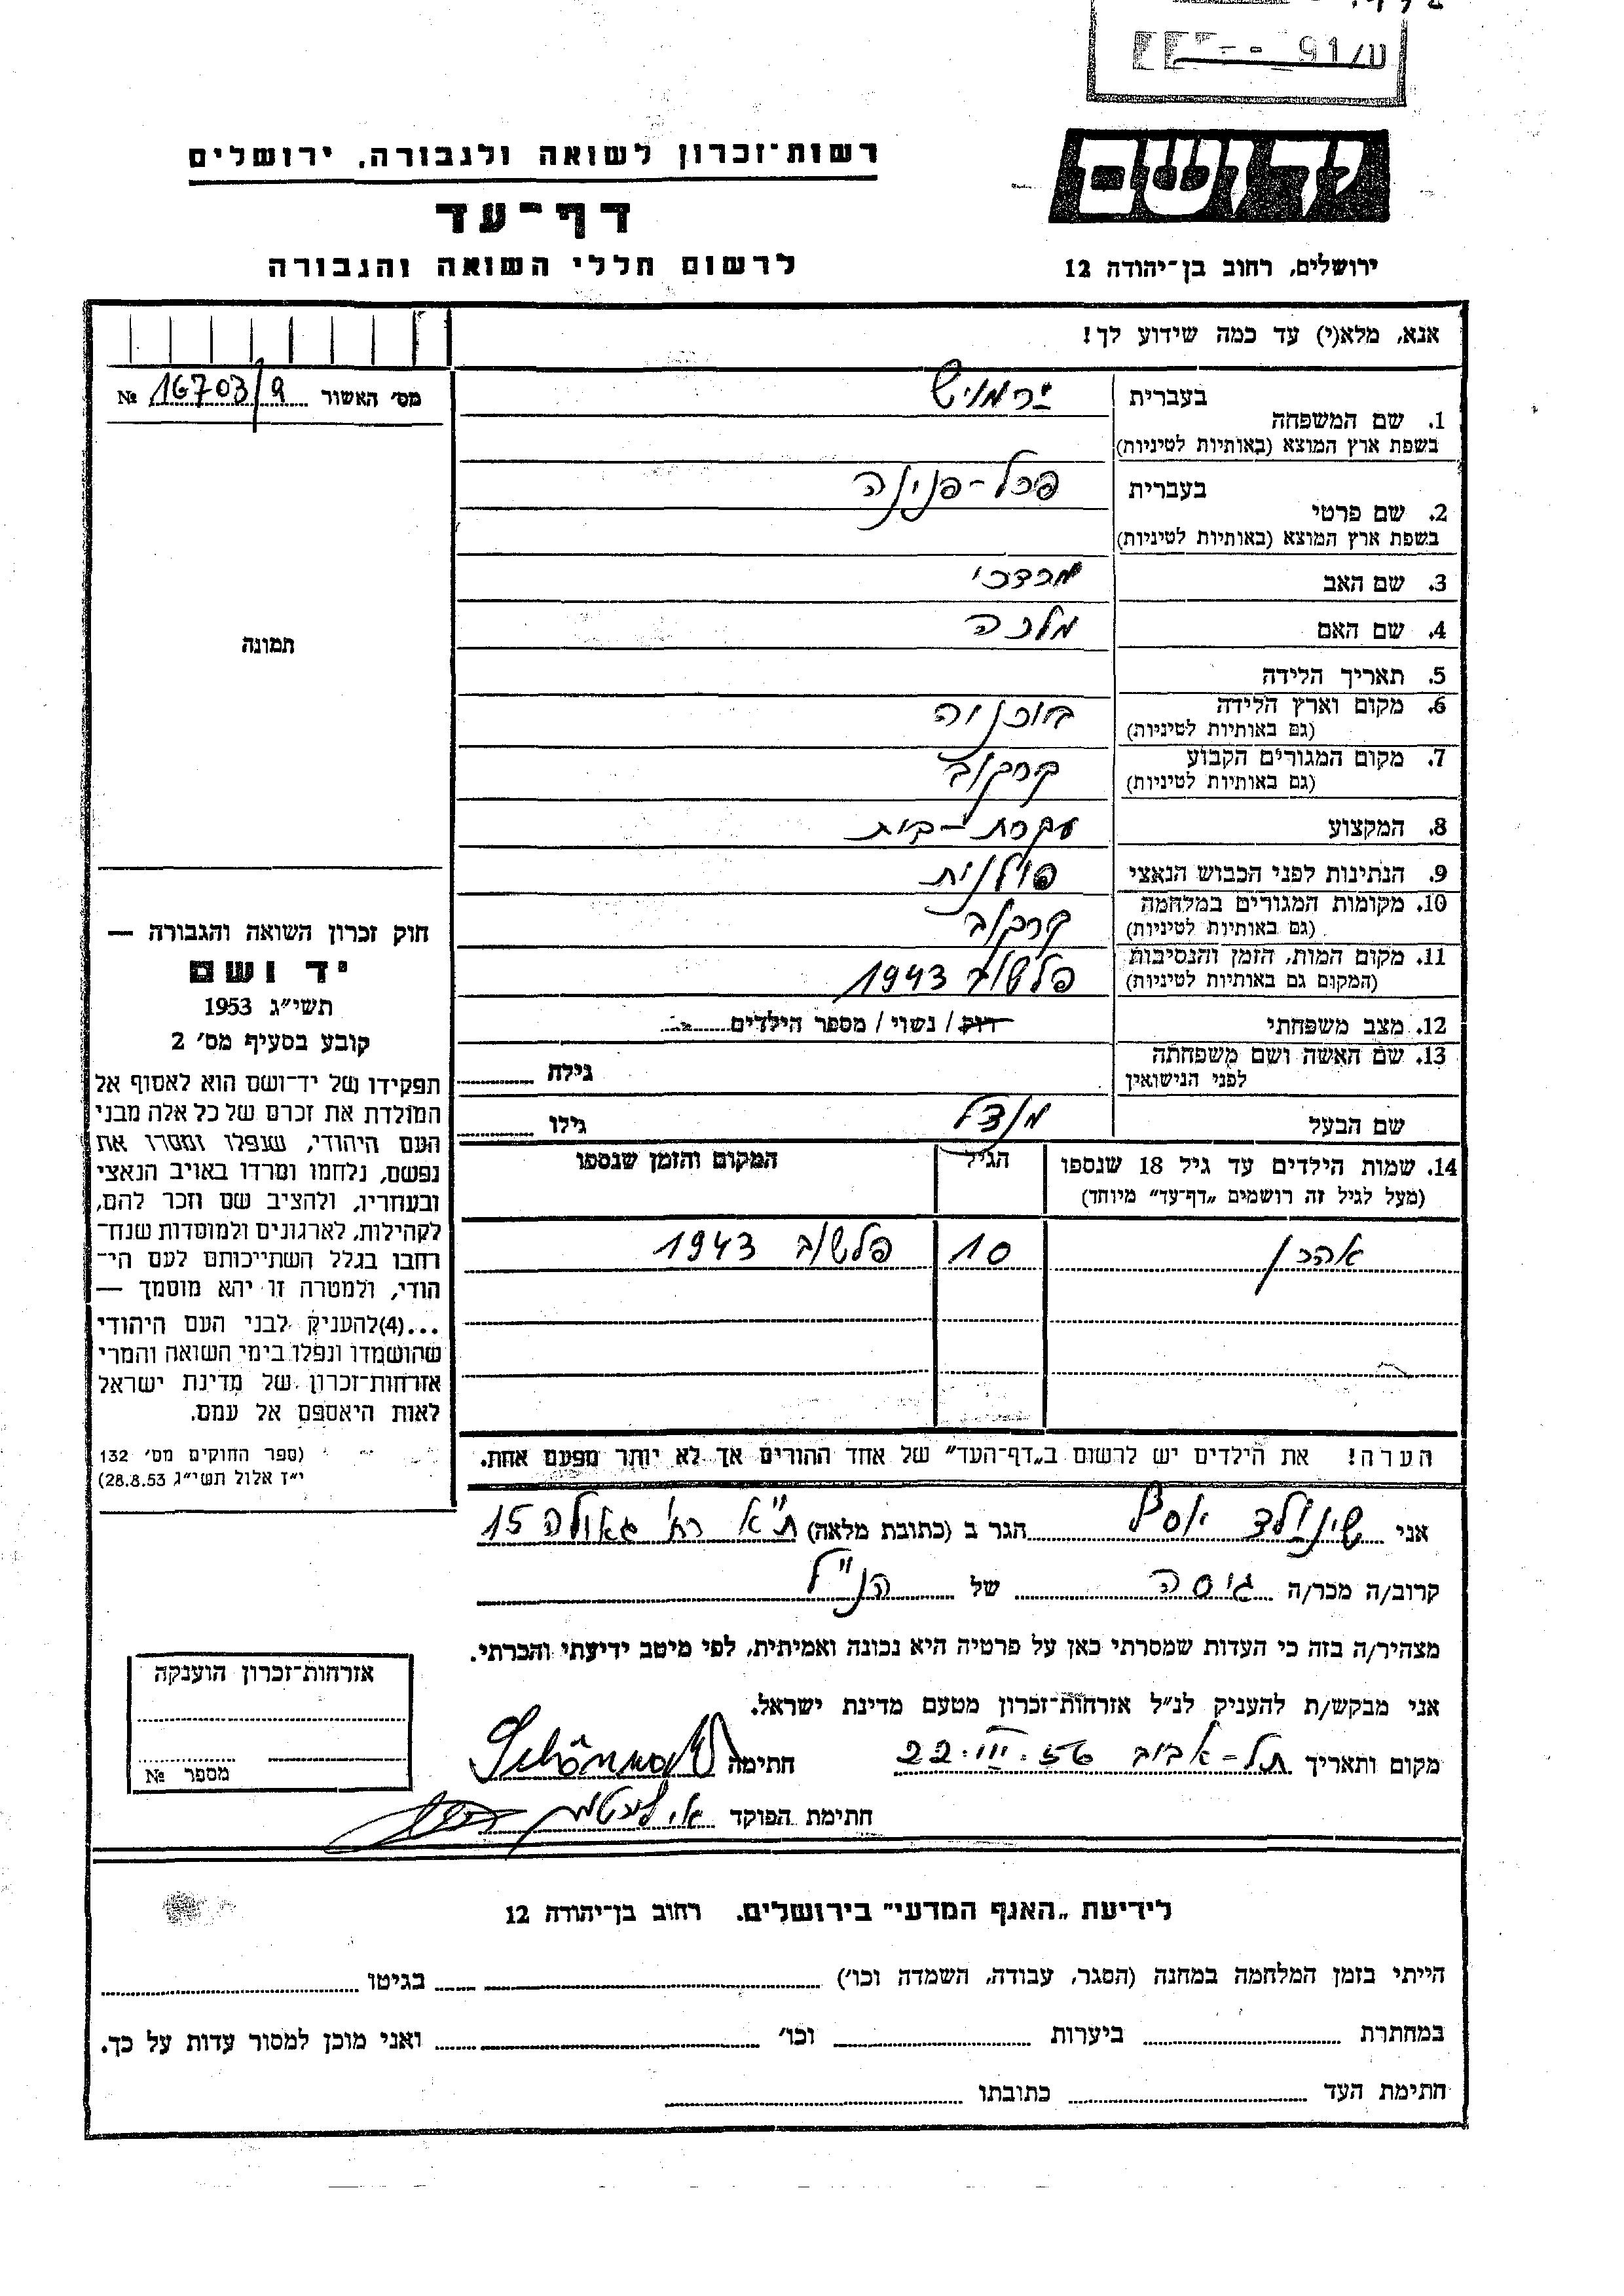 91/ם
יד ושם
רשות־זכרון לשואה ולגבורה, ירושלים
דף־עד
ירושלים, רחוב בן־יהודה 12
לרשום חללי השואה והגבורה
אנא, מלא(י) עד כמה שידוע לך!
מס׳ האשור 16703/9 №
1. שם המשפחה
בעברית ירמוש
בשפת ארץ המוצא (באותיות לטיניות)
2. שם פרטי
בעברית פרל-פנינה
בשפת ארץ המוצא (באותיות לטיניות)
3. שם האב מרדכי
4. שם האם מלכה
5. תאריך הלידה
6. מקום וארץ הלידה בוכניה
(גם באותיות לטיניות)
7. מקום המגורים הקבוע קרקוב
(גם באותיות לטיניות)
8. המקצוע עקרת-בית
9. הנתינות לפני הכבוש הנאצי פולנית
10. מקומות המגורים במלחמה קרקוב
(גם באותיות לטיניות)
11. מקום המות, הזמן והנסיבות פלשוב 1943
(המקום גם באותיות לטיניות)
12. מצב משפחתי רוק / נשוי / מספר הילדים
13. שם האשה ושם משפחתה
לפני הנישואין
גילה
שם הבעל מנדל
גילו
תמונה
חוק זכרון השואה והגבורה —
יד ושם
תשי״ג 1953
קובע בסעיף מס׳ 2
תפקידו של יד־ושם הוא לאסוף אל
המולדת את זכרם של כל אלה מבני
העם היהודי, שנפלו ומסרו את
נפשם, נלחמו ומרדו באויב הנאצי
ובעוזריו, ולהציב שם וזכר להם,
לקהילות, לארגונים ולמוסדות שנח־
רבו בגלל השתייכותם לעם הי־
הודי, ולמטרה זו יהא מוסמך —
...(4)להעניק לבני העם היהודי
שהושמדו ונפלו בימי השואה והמרי
אזרחות־זכרון של מדינת ישראל
לאות היאספם אל עמם.
(ספר החוקים מס׳ 132
י״ז אלול תשי״ג 28.8.53)
14. שמות הילדים עד גיל 18 שנספו
(מעל לגיל זה רושמים „דף־עד״ מיוחד)
הגיל
המקום והזמן שנספו
אהרן 10 פלשוב 1943
הערה! את הילדים יש לרשום ב„דף־העד״ של אחד ההורים אך לא יותר מפעם אחת.
אני שינולד יוסף הגר ב (כתובת מלאה) ת״א רח׳ גאולה 15
קרוב/ה מכר/ה גיסה של הנ״ל
מצהיר/ה בזה כי העדות שמסרתי כאן על פרטיה היא נכונה ואמיתית, לפי מיטב ידיעתי והכרתי.
אני מבקש/ת להעניק לנ״ל אזרחות־זכרון מטעם מדינת ישראל.
מקום ותאריך תל-אביב 22.III.56 חתימה
חתימת הפוקד
אזרחות־זכרון הוענקה
מספר №
לידיעת „האגף המדעי״ בירושלים. רחוב בן־יהודה 12
הייתי בזמן המלחמה במחנה (הסגר, עבודה, השמדה וכו׳) בגיטו
במחתרת ביערות וכו׳ ואני מוכן למסור עדות על כך.
חתימת העד כתובתו